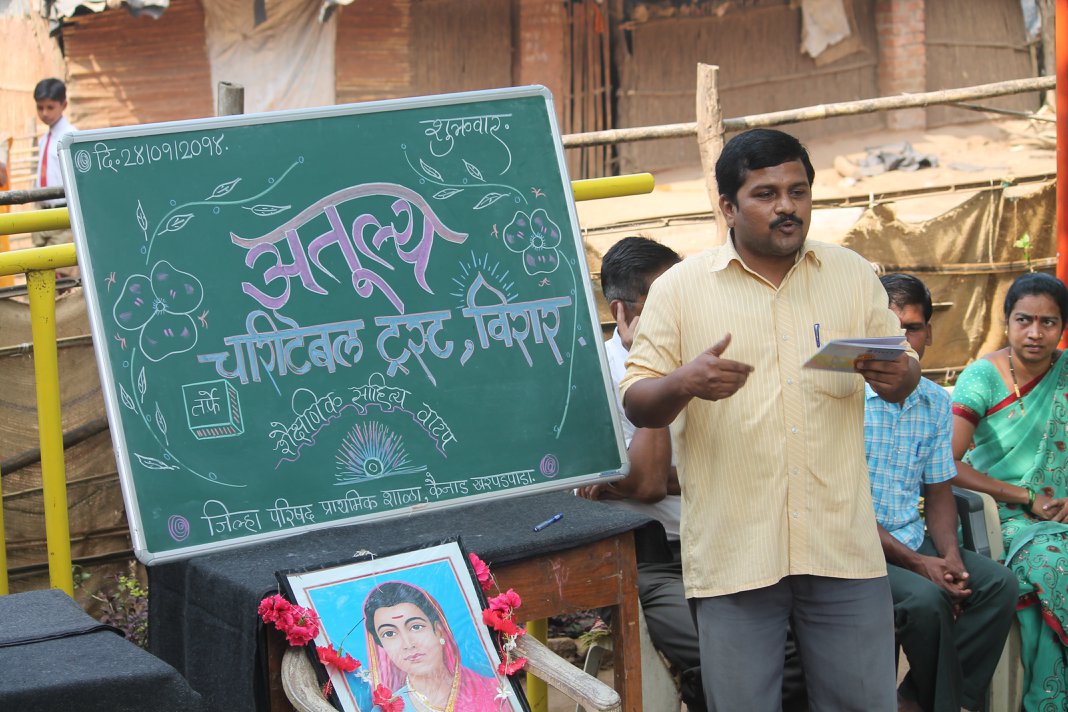 दि. २४/०१/२०१४.
शुक्रवार.
अतुल्य
चॅारिटेबल ट्रस्ट, विरार.
तर्फे
शैक्षणिक साहित्य वाटप
जिल्हा परिषद प्राथमिक शाळा, कैनाड खरपडपाडा.